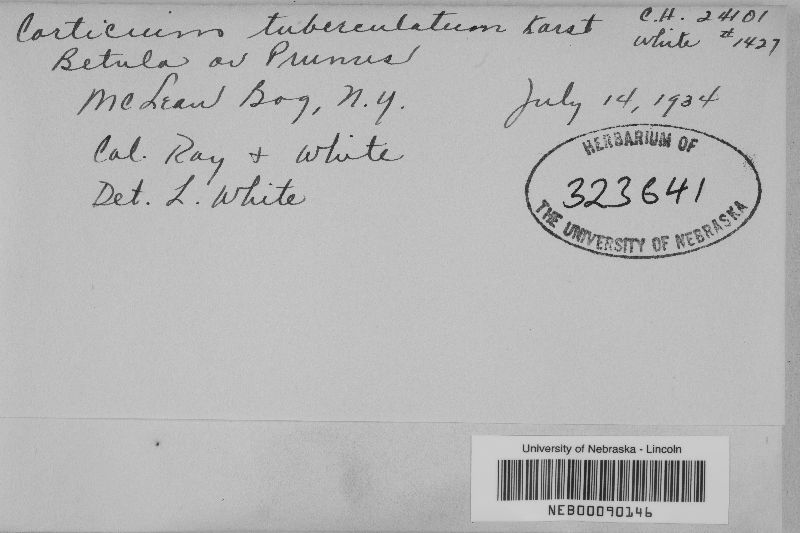 Corticium tuberculatum Karst
C.H. 24101
White #1427
Betula or Prunus
McLean Bog, N.Y.
July 14, 1934
Col. Ray + White
Det. L. White
HERBARIUM OF
323641
THE UNIVERSITY OF NEBRASKA
University of Nebraska - Lincoln
NEB00090146